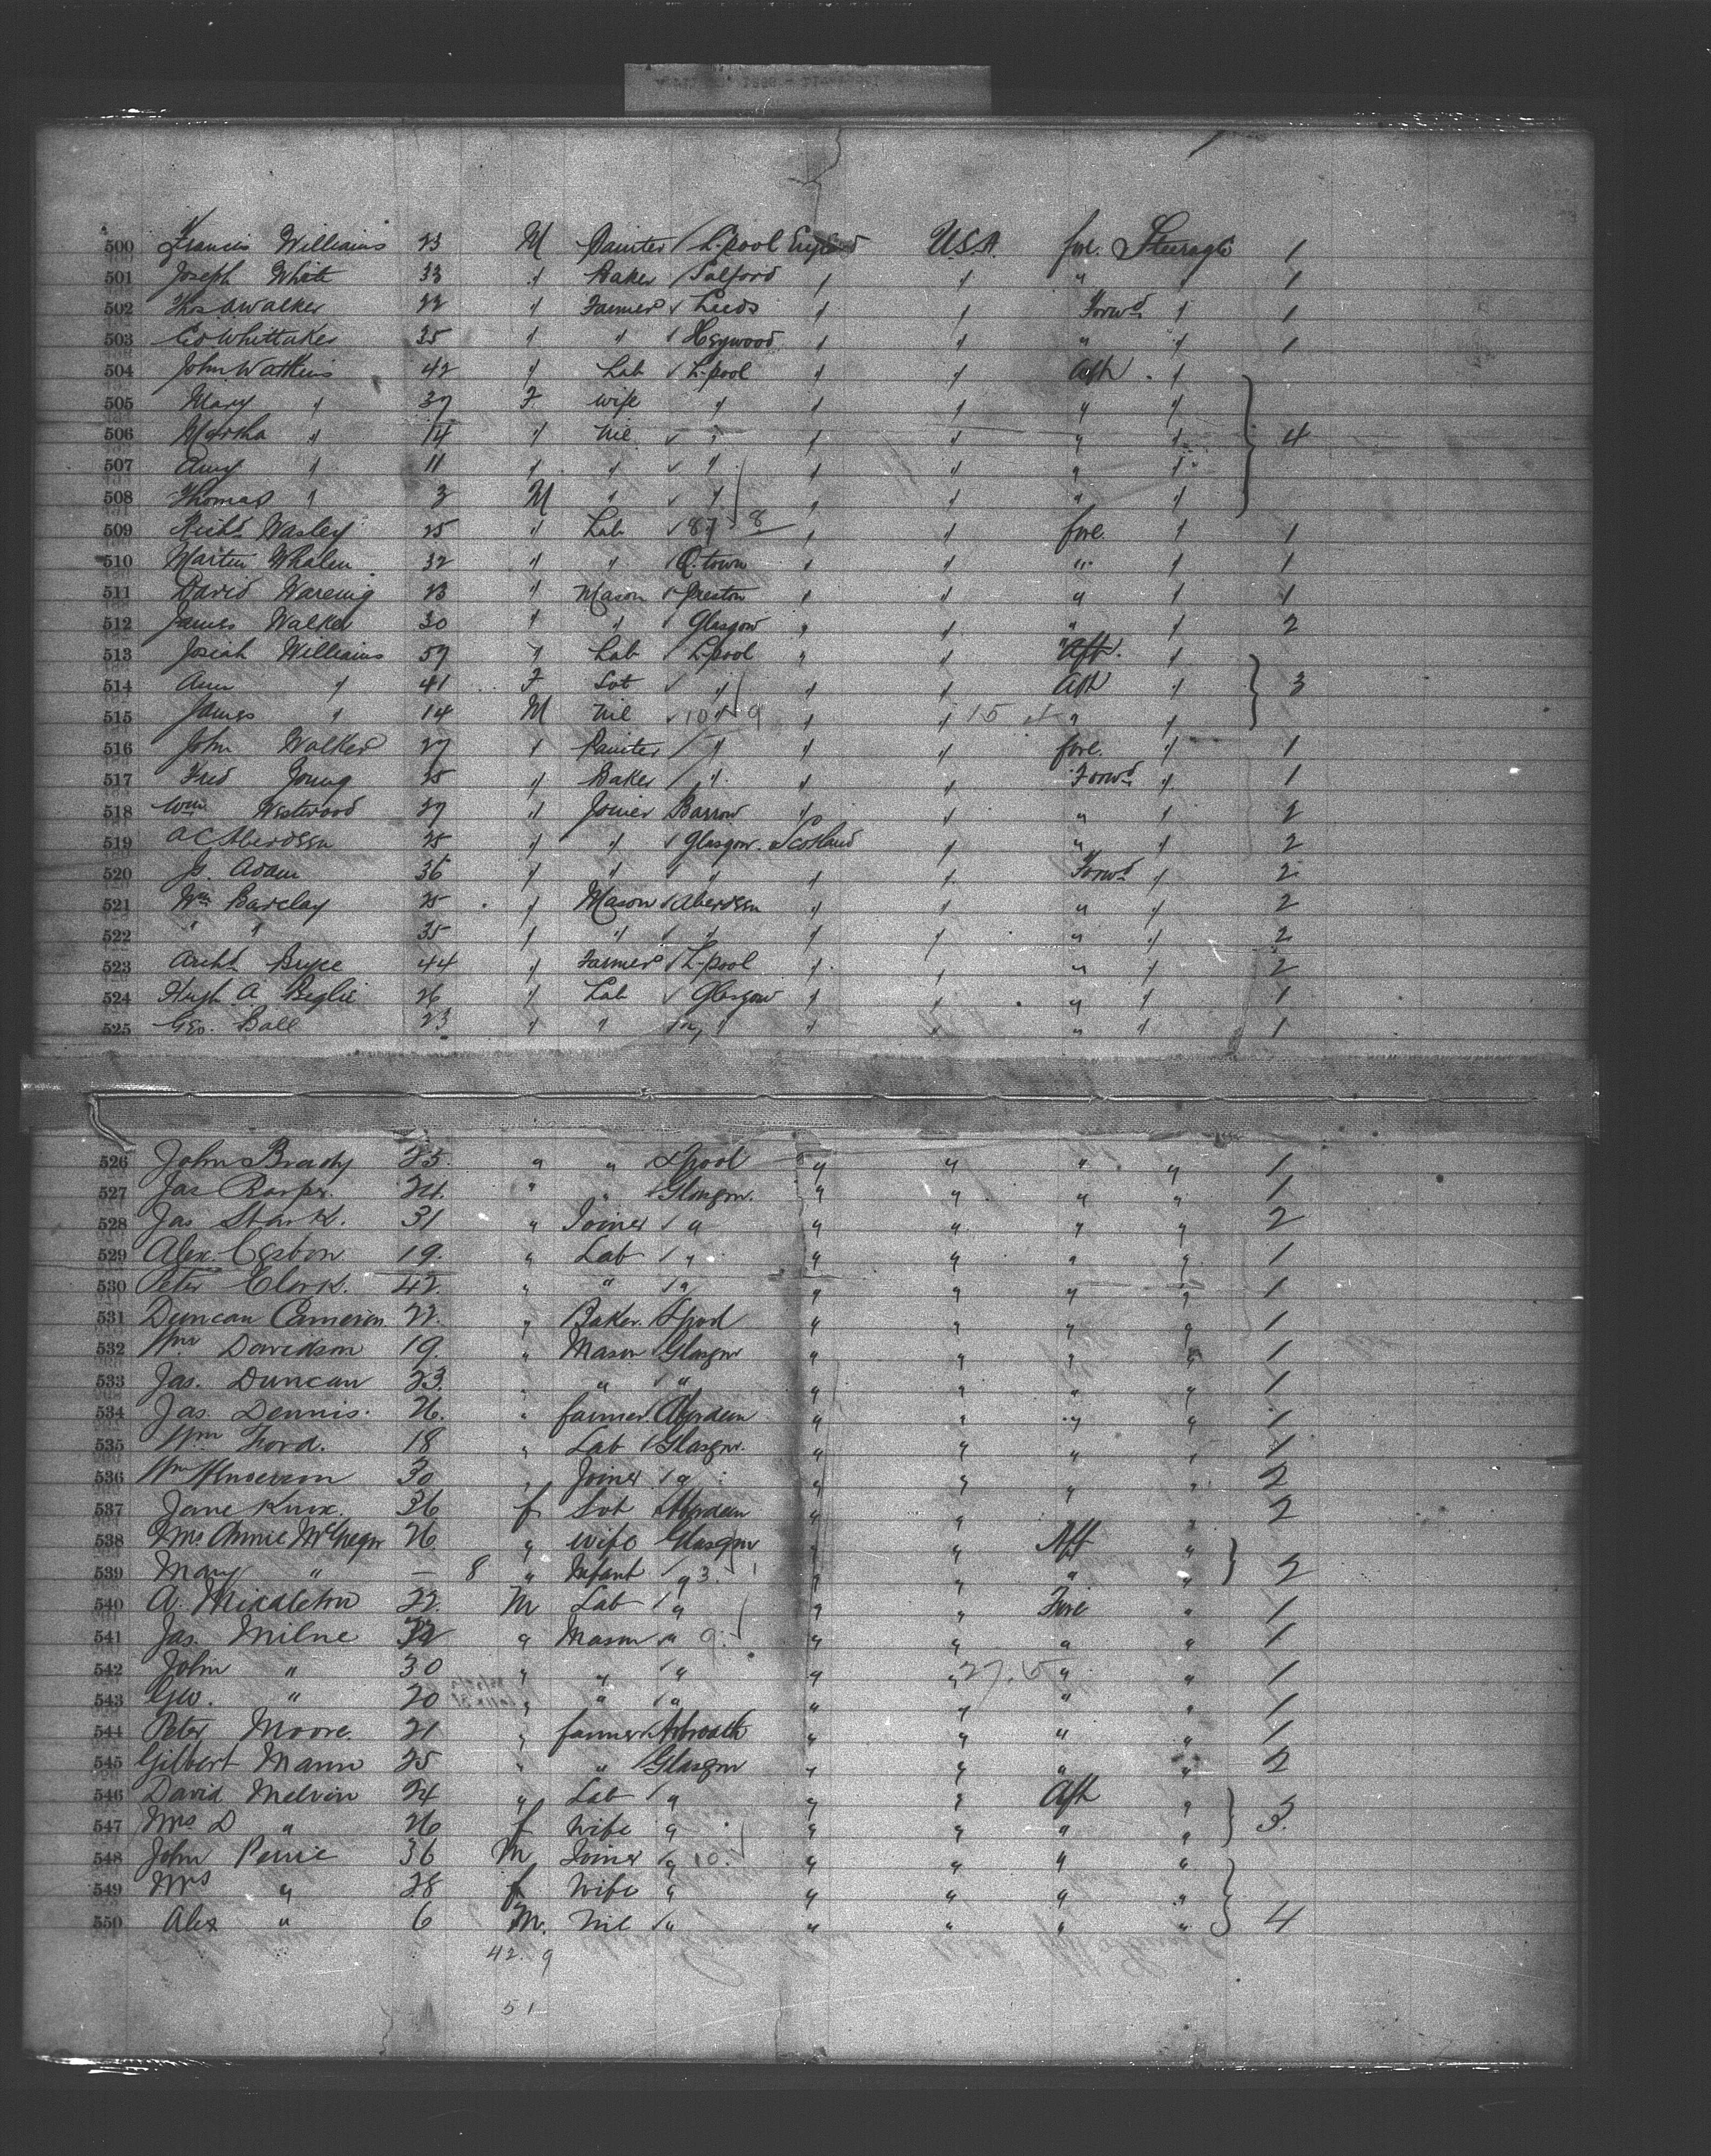 500 Francis Williams 23 M Painter / L.pool England U.S.A. fore. Steerage 1
501 Joseph White 33 " Baker / Salford " " " " 1
502 Thos A Walker 22 " Farmer ✓ Leeds " " Forwd " 1
503 Ed Whittaker 35 " " / Heywood " " " " 1
504 John Watkins 42 " Lab ✓ L.pool " " Aft "
505 Mary " 37 F wife " " " " "
506 Martha " 14 " Nil ✓ " " " " " 4
507 Amy " 11 " " ✓ " " " " "
508 Thomas " 3 M " ✓ " " " " "
509 Richd Wasley 25 " Lab ✓ 87 8 " " fore. " 1
510 Martin Whalen 32 " " / Q.town " " " " 1
511 David Wareing 23 " Mason ✓ Preston " " " " 1
512 James Walker 30 " " / Glasgow " " " " 2
513 Josiah Williams 59 " Lab / L.pool " " Aft. "
514 Ann " 41 F Sot ✓ " " " Aft " 3
515 James " 14 M Nil ✓ 10 9 " " 15 " "
516 John Walker 27 " Painter / " " " fore. " 1
517 Fred Young 25 " Baker / " " " Forwd " 1
518 Wm Westwood 27 " Joiner Barrow " " " 2
519 A C Aberdeen 25 " " ✓ Glasgow. Scotland " " " 2
520 Js. Adam 36 " " " " " Forwd " 2
521 Wm Barclay 25 " Mason ✓ Aberdeen " " " " 2
522 " " 35 " " / " " " " " 2
523 Archd Bryce 44 " Farmer / L.pool " " " " 2
524 Hugh A Beglie 26 " Lab ✓ Glasgow " " " " 1
525 Geo. Ball 23 " " / " " " " " 1
526 John Brady 25. " " Lpool " " " " 1
527 Jas 24. " " / Glasgow. " " " " 1
528 Jas Stark. 31 " Joiner / " " " " " 2
529 Alex. 19. " Lab / " " " " " 1
530 Peter Clark. 42. " " / " " " " " 1
531 Duncan Cameron 22. " Baker. Lpool " " " " 1
532 Wm Davidson 19. " Mason / Glasgow " " " " 1
533 Jas. Duncan 23. " " / " " " " " 1
534 Jas. Dennis. 26. " farmer. Aberdeen " " " " 1
535 Wm Ford. 18 " Lab / Glasgow. " " " " 1
536 Wm Henderson 30 " Joiner / " " " " " 2
537 Jane Knox. 36 f Sot Aberdeen " " " 2
538 Mrs Annie McGregor 26. " wife Glasgow " " Aft "
539 Mary " — 8 " Infant / " 3. 1 " " " " 2
540 A. Middleton 22. M Lab / " " " Fore " 1
541 Jas. Milne 32 " Mason " 9. " " " " 1
542 John " 30 " " / " " " 27. 5 " " 1
543 Geo. " 20 " " / " " " " " 1
544 Peter Moore. 21 " farmer Arbroath " " " " 1
545 Gilbert Mann 25 " " / Glasgow " " " " 2
546 David Melvin 24 " Lab / " " " Aft "
547 Mrs D " 26 f Wife " " " " " 3.
548 John Peirie 36 M Joiner / " 10. " " " "
549 Mrs " 28 f Wife " " " " "
550 Alex " 6 M. Nil / " " " " " 4
42. 9
51